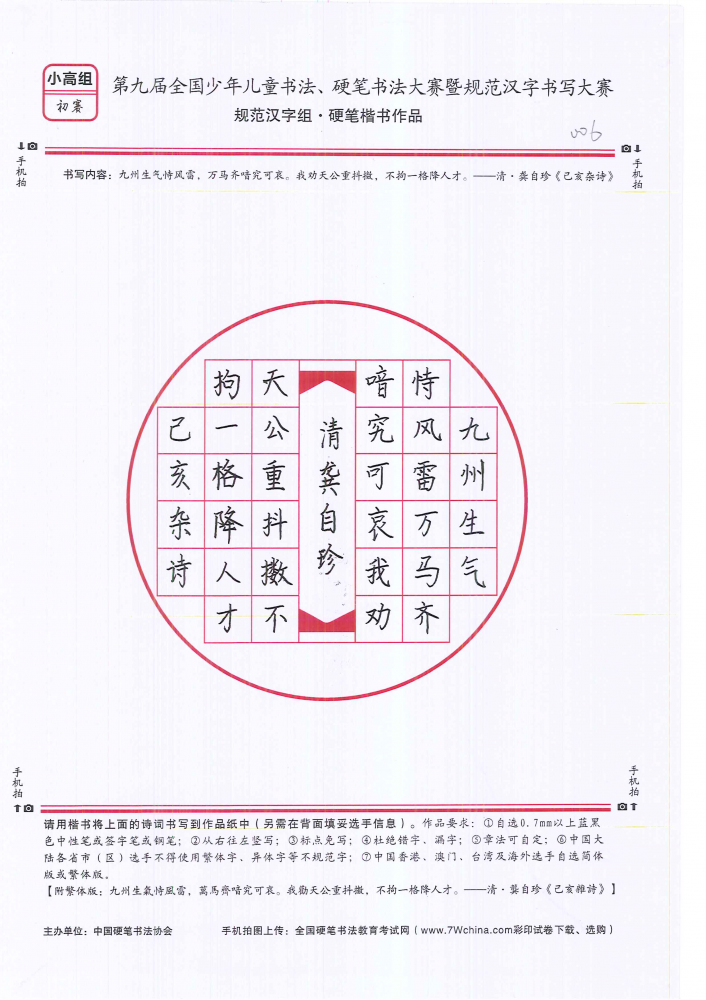 小高组
初赛
第九届全国少年儿童书法、硬笔书法大赛暨规范汉字书写大赛
规范汉字组·硬笔楷书作品
006
手机拍
手机拍
书写内容：九州生气恃风雷，万马齐喑究可哀。我劝天公重抖擞，不拘一格降人才。——清·龚自珍《己亥杂诗》
九州生气
恃风雷万马齐
喑究可哀我劝
清龚自珍
天公重抖擞不
拘一格降人才
己亥杂诗
手机拍
手机拍
请用楷书将上面的诗词书写到作品纸中（另需在背面填妥选手信息）。作品要求：①自选0.7mm以上蓝黑
色中性笔或签字笔或钢笔；②从右往左竖写；③标点免写；④杜绝错字、漏字；⑤章法可自定；⑥中国大
陆各省市（区）选手不得使用繁体字、异体字等不规范字；⑦中国香港、澳门、台湾及海外选手自选简体
版或繁体版。
【附繁体版：九州生氣恃風雷，萬馬齊喑究可哀。我勸天公重抖擻，不拘一格降人才。——清·龔自珍《己亥雜詩》】
主办单位：中国硬笔书法协会
手机拍图上传：全国硬笔书法教育考试网（www.7Wchina.com彩印试卷下载、选购）